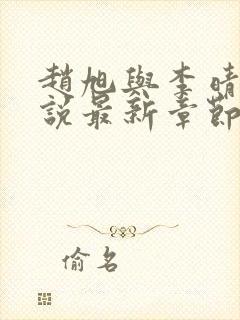 趙旭與李晴
說最新章節
偷名